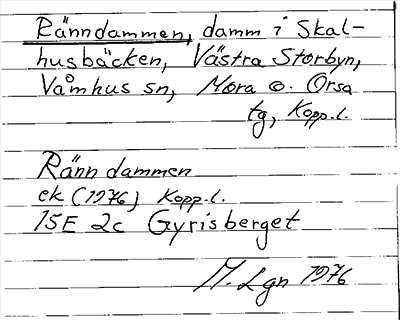 Ränndammen, damm i Skal-
husbäcken, Västra Storbyn,
Våmhus sn, Mora o. Orsa
tg, Kopp.l.
Ränndammen
ek (1976) Kopp.l.
15E 2c Gyrisberget
M. Lgn 1976